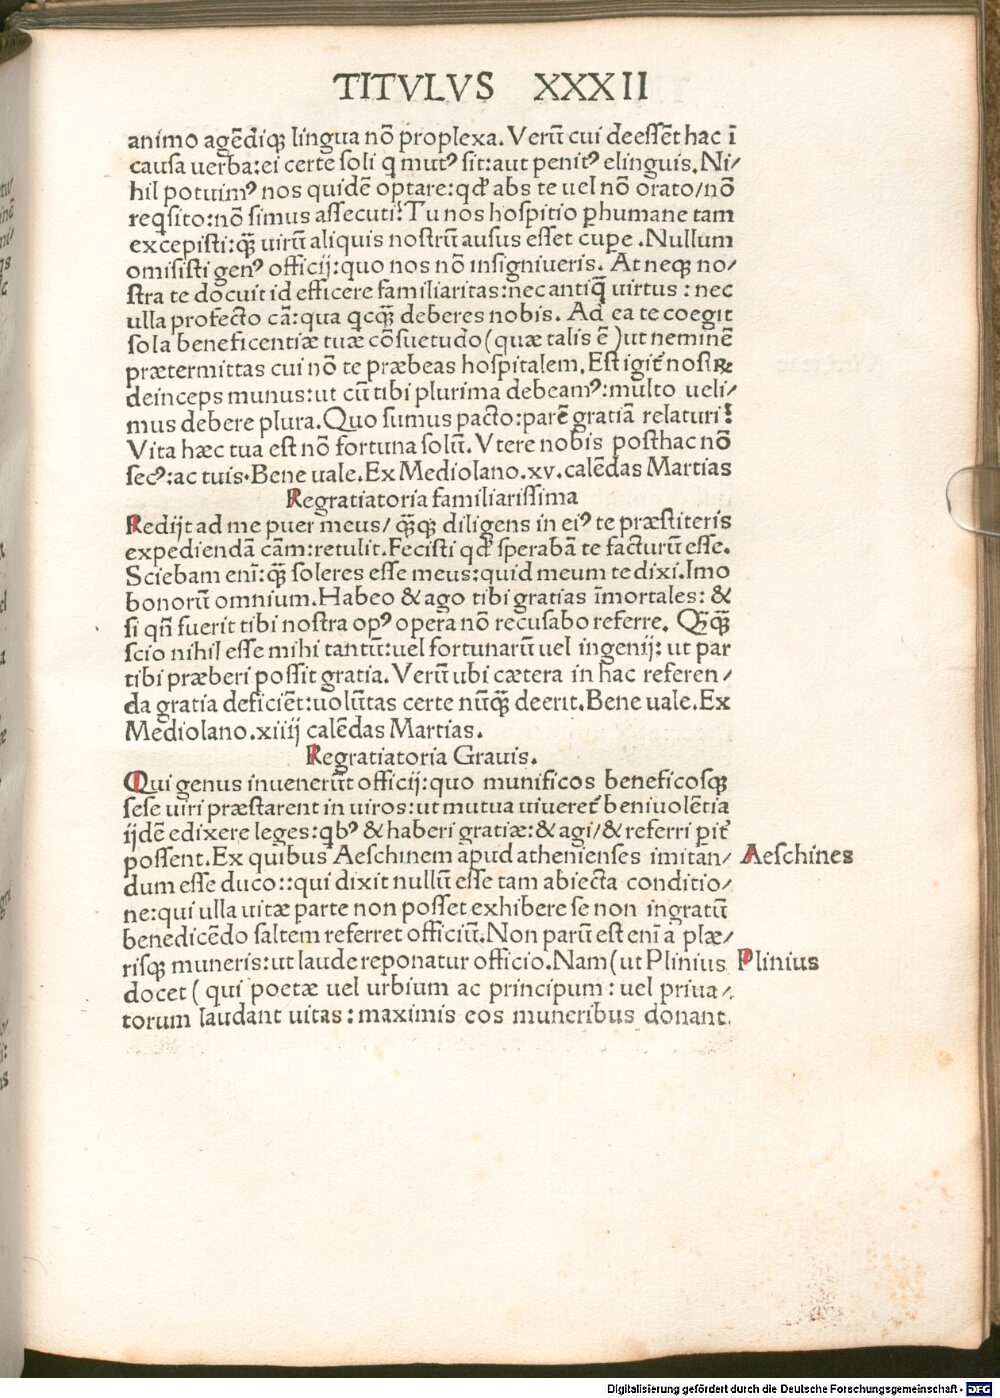 TITVLVS XXXII
animo agēdiqꝫ lingua nō proplexa. Verū cui deessēt hac ī
causa uerba:ei certe soli q mutꝰ sit:aut penitꝰ elinguis. Ni/
hil potuimꝰ nos quidē optare:qđ abs te uel nō orato/nō
reqsito:nō simus assecuti? Tu nos hospitio ꝑhumane tam
excepisti:qꝫ̄ uirū aliquis nostrū ausus esset cuꝑe. Nullum
omisisti genꝰ officij:quo nos nō insigniueris. At neqꝫ no/
stra te docuit id efficere familiaritas:nec antiq̄ uirtus : nec
ulla profecto cā:qua qcqꝫ̄ deberes nobis. Ad ea te coegit
sola beneficentiæ tuæ cōsuetudo (quæ talis ē )ut neminē
prætermittas cui nō te præbeas hospitalem. Est igit᷑ nosꝝ
deinceps munus:ut cū tibi plurima debeamꝰ:multo ueli/
mus debere plura. Quo sumus pacto:parē gratiā relaturi?
Vita hæc tua est nō fortuna solū. Vtere nobis posthac nō
secꝰ:ac tuis. Bene uale. Ex Mediolano.xv.calēdas Martias
Regratiatoria familiarissima
Redijt ad me puer meus/ qꝫ̄qꝫ diligens in eiꝰ te præstiteris
expediendā cām:retulit. Fecisti qđ sperabā te facturū esse.
Sciebam enī:qꝫ̄ soleres esse meus:quid meum te dixi. Imo
bonorū omnium. Habeo & ago tibi gratias īmortales: &
si qn̄ fuerit tibi nostra opꝰ opera nō recusabo referre. Qꝫ̄qꝫ̄
scio nihil esse mihi tantū:uel fortunarū uel ingenij: ut par
tibi præberi possit gratia. Verū ubi cætera in hac referen/
da gratia deficiēt:uolūtas certe nūqꝫ̄ deerit. Bene uale. Ex
Mediolano.xiiij calēdas Martias.
Regratiatoria Grauis.
Qui genus inuenerūt officij:quo munificos beneficosqꝫ
sese uiri præstarent in uiros:ut mutua uiueret᷑ beniuolētia
ijdē edixere leges:qbꝰ & haberi gratiæ:& agi/& referri ꝑit᷑
possent. Ex quibus Aeschinem apud athenienses imitan/
Aeschines
dum esse duco::qui dixit nullū esse tam abiecta conditio/
ne:qui ulla uitæ parte non posset exhibere se non ingratū
benedicēdo saltem referret officiū. Non parū est enī a plæ/
risqꝫ muneris:ut laude reponatur officio. Nam (ut Plinius
Plinius
docet ( qui poetæ uel urbium ac principum : uel priua/
torum laudant uitas : maximis eos muneribus donant.
Digitalisierung gefördert durch die Deutsche Forschungsgemeinschaft - DFG